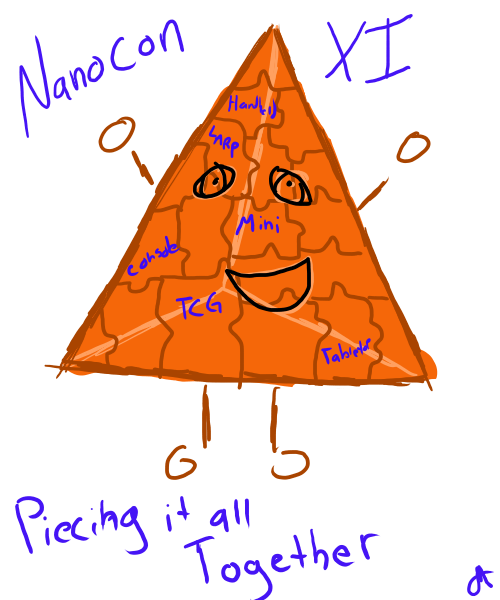 Nanocon XI
LARP
Mini
console
TCG
Tabletop
Piecing it all
Together